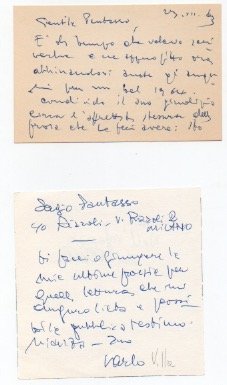 29. XII. 63
Gentile Pantasso
È da tempo che volevo scri
verLe e ne approfitto ora
abbinandoci anche gli augu
ri per un bel 19
condivido il suo giudizio
circa l'affrettata stesura della
prosa che Le feci avere:
Sagio Pantasso
c/o Rizzoli - V. Rizzoli 2
MILANO
Vi faccio giungere le
mie ultime poesie per
quella lettura che mi
auguro lieta e possi
bile pubblica testimo
nianza - Suo
Carlo Villa